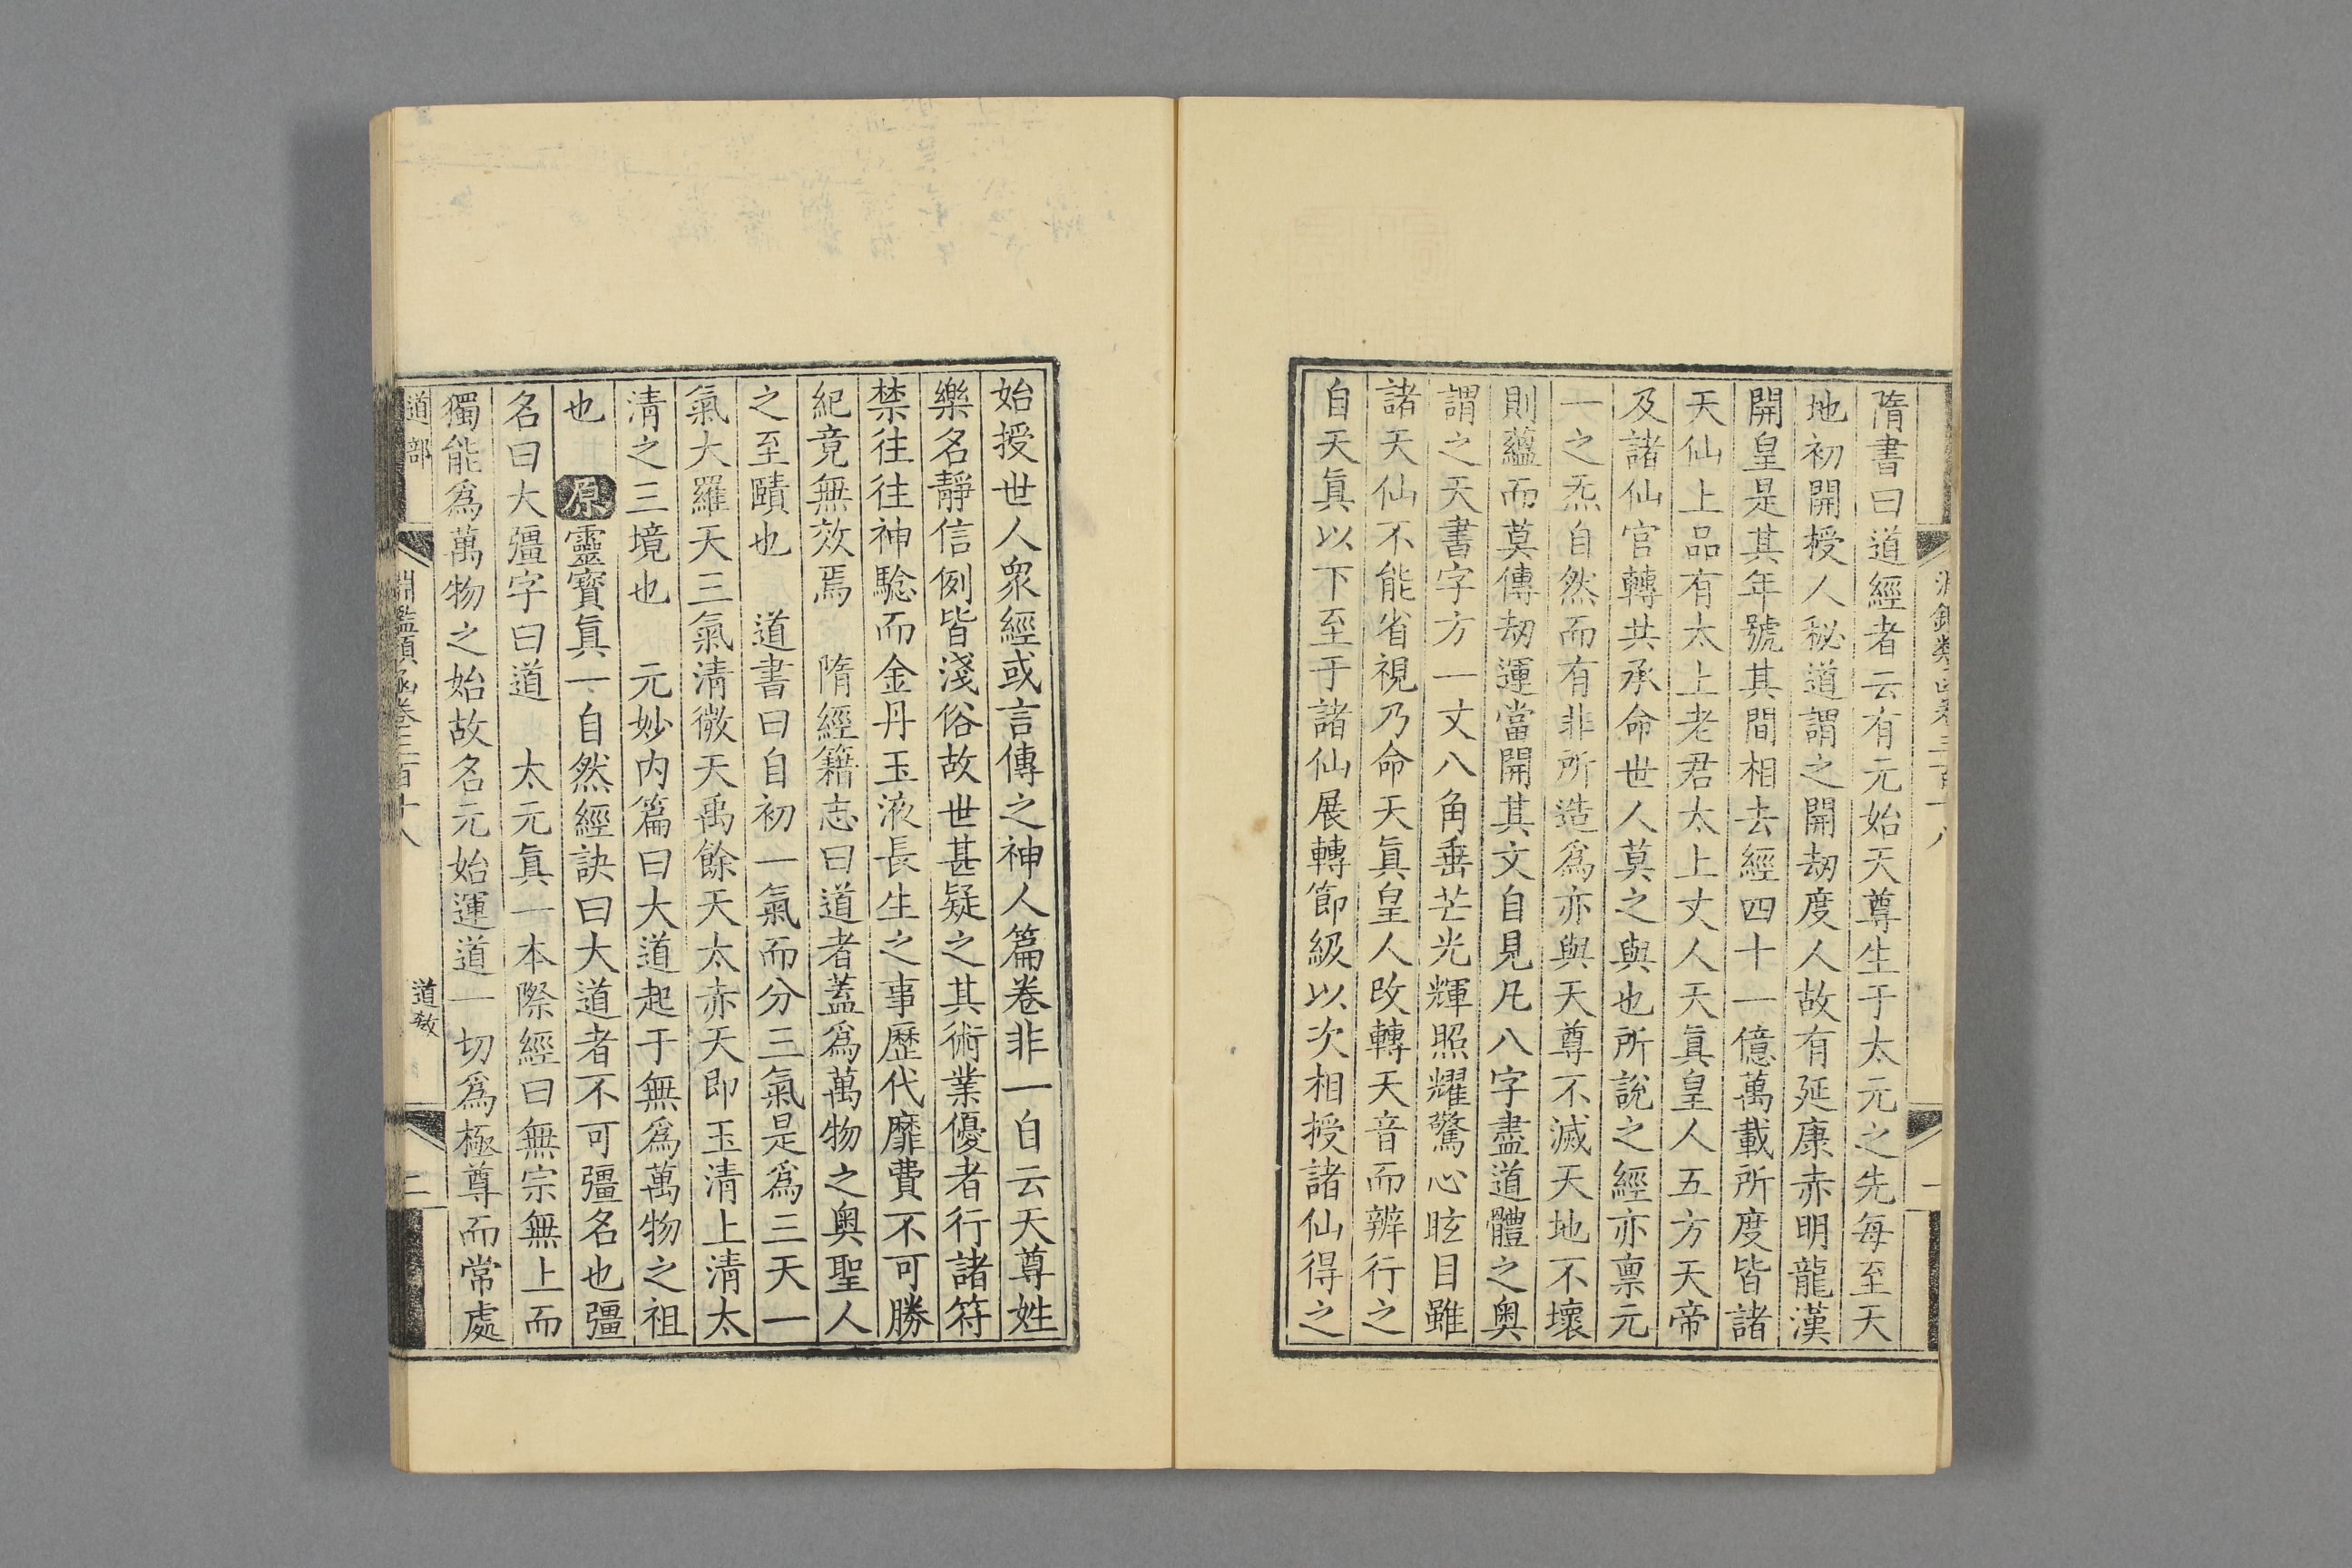 隋書曰道經者云有元始天尊生于太元之先每至天
地初開授人秘道謂之開劫度人故有延康赤明龍漢
開皇是其年號其間相去經四十一億萬載所度皆諸
天仙上品有太上老君太上丈人天眞皇人五方天帝
及諸仙官轉共承命世人莫之與也所說之經亦禀元
一之炁自然而有非所造爲亦與天尊不滅天地不壞
則蘊而莫傳劫運當開其文自見凡八字盡道體之奥
謂之天書字方一丈八角垂芒光輝照耀驚心眩目雖
諸天仙不能省視乃命天眞皇人改轉天音而辨行之
自天眞以下至于諸仙展轉節級以次相授諸仙得之
始授世人衆經或言傳之神人篇卷非一自云天尊姓
樂名靜信例皆淺俗故世甚疑之其術業優者行諸符
禁往往神驗而金丹玉液長生之事歷代靡費不可勝
紀竟無效焉　隋經籍志曰道者蓋爲萬物之奧聖人
之至賾也　道書曰自初一氣而分三氣是爲三天一
氣大羅天三氣清微天禹餘天太赤天即玉清上清太
清之三境也　元妙内篇曰大道起于無爲萬物之祖
也　原靈寶眞一自然經訣曰大道者不可彊名也彊
名曰大彊字曰道　太元眞一本際經曰無宗無上而
獨能爲萬物之始故名元始運道一切爲極尊而常處
道部
淵鑑類函卷三百十八
道教
二